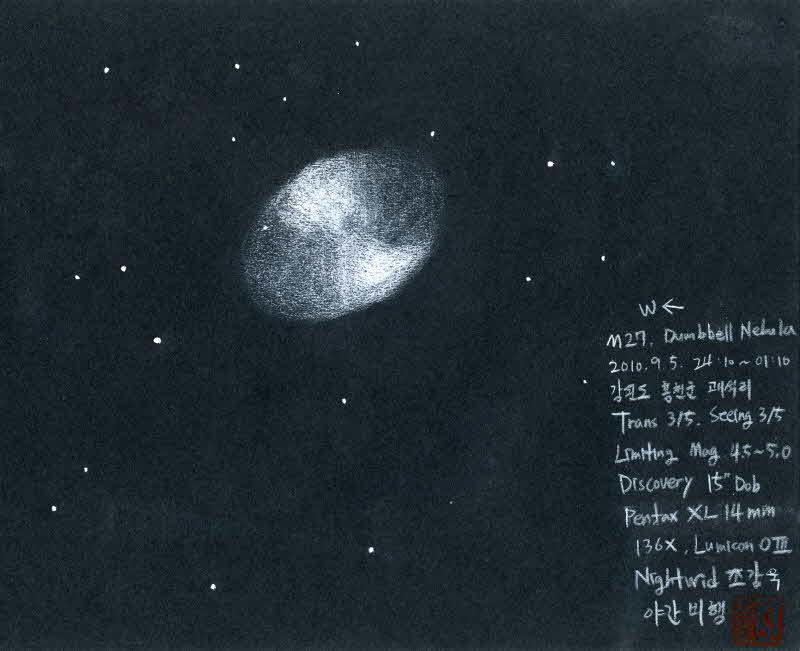 W ←
M27. Dumbbell Nebula
2010. 9. 5. 24:10 ~ 01:10
강원도 홍천군 괘석리
Trans 3/5. Seeing 3/5
Limiting Mag 4.5~5.0
Discovery 15" Dob
Pentax XL 14mm
136X, Lumicon OⅢ
Nightwid 조강욱
야간 비행